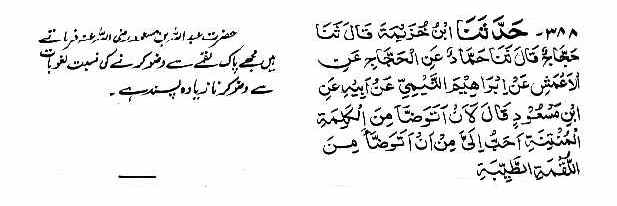 ۳۸۸- حَدَّثَنَا ابْنُ خُزَيْمَةَ قَالَ ثَنَا
حَجَّاجٌ قَالَ ثَنَا حَمَّادٌ عَنِ الْحَجَّاجِ عَنِ
الْاَعْمَشِ عَنْ اِبْرَاهِيْمَ التَّيْمِيِّ عَنْ اَبِيْهِ عَنِ
ابْنِ مَسْعُوْدٍ قَالَ لَاَنْ اَتَوَضَّأَ مِنَ الْكَلِمَةِ
الْمُنْتِنَةِ اَحَبُّ اِلَيَّ مِنْ اَنْ اَتَوَضَّأَ مِنَ
اللُّقْمَةِ الطَّيِّبَةِ
حضرت عبداللہ بن مسعود رضی اللہ عنہ فرماتے
ہیں مجھے پاک لقمے سے وضو کرنے کی نسبت لغویات
سے وضو کرنا زیادہ پسند ہے۔